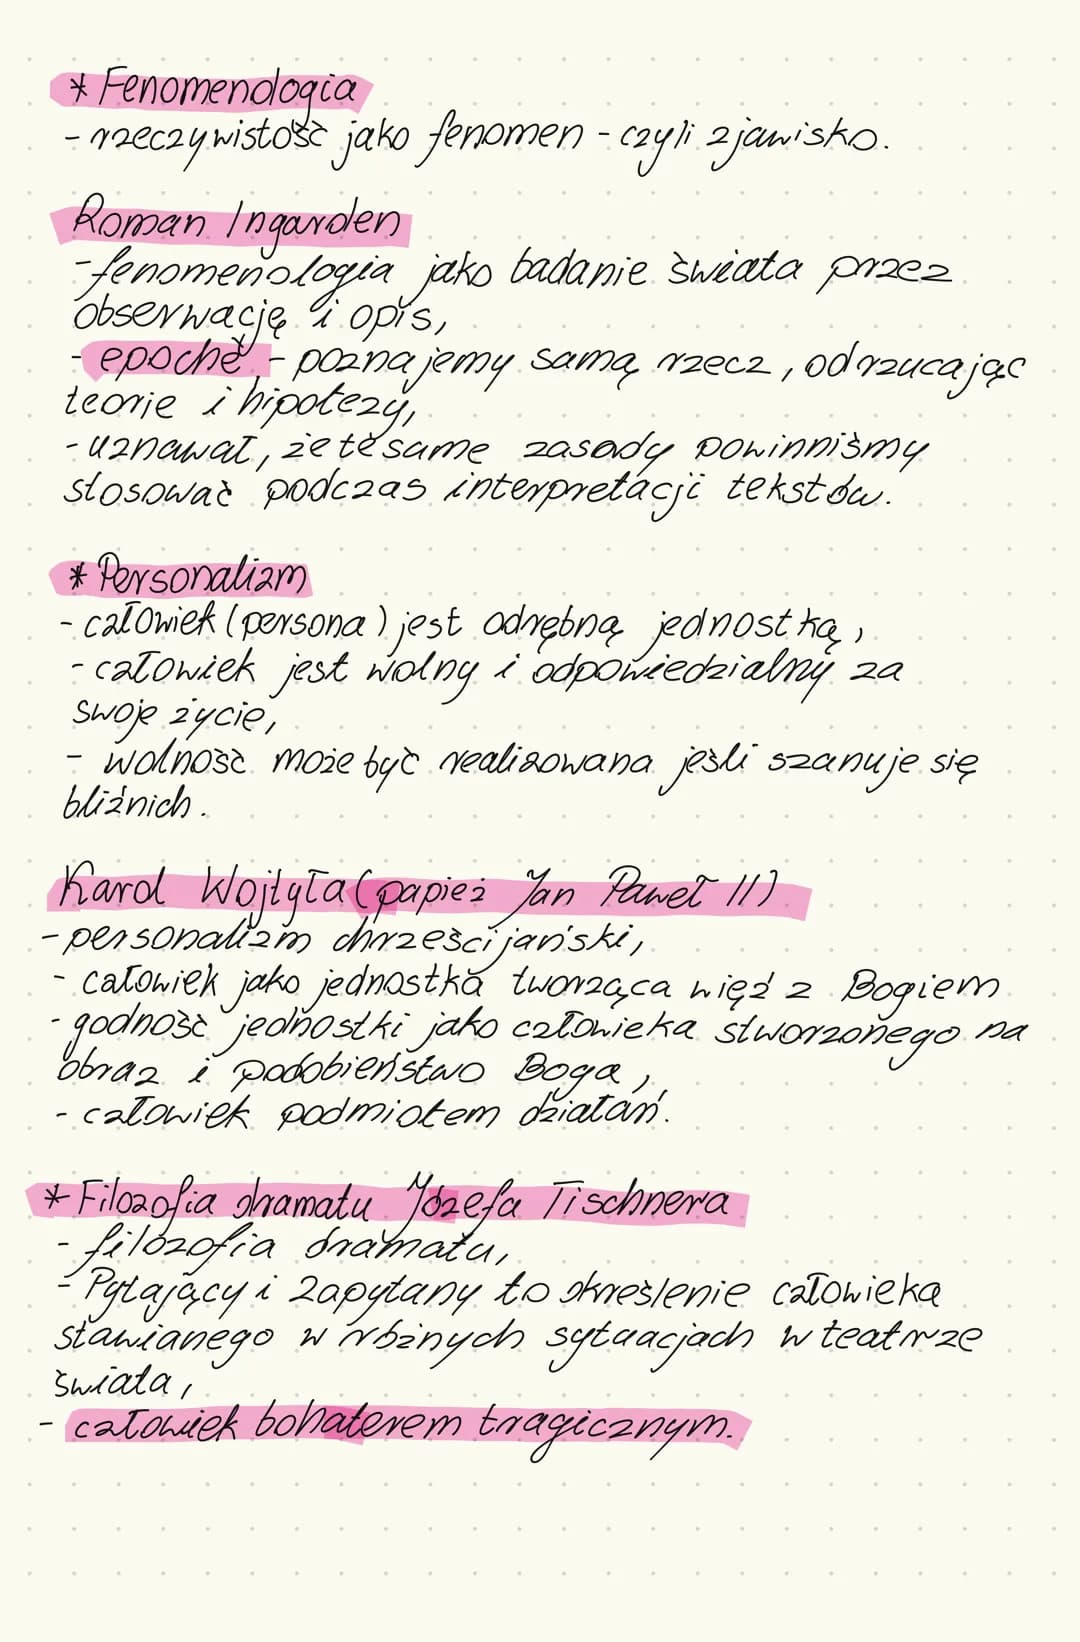 * Fenomenologia
- rzeczywistość jako fenomen - czyli zjawisko.
Roman Ingarden
- fenomenologia jako badanie świata przez
obserwację i opis,
- epoché - poznajemy samą rzecz, odrzucając
teorie i hipotezy,
- uznawał, że te same zasady powinniśmy
stosować podczas interpretacji tekstów.
* Personalizm
- człowiek (persona) jest odrębną jednostką,
- człowiek jest wolny i odpowiedzialny za
swoje życie,
- wolność może być realizowana jeśli szanuje się
bliźnich.
Karol Wojtyła (papież Jan Paweł II)
- personalizm chrześcijański,
- człowiek jako jednostka tworząca więź z Bogiem
- godność jednostki jako człowieka stworzonego na
obraz i podobieństwo Boga,
- człowiek podmiotem działań.
* Filozofia dramatu Józefa Tischnera
- filozofia dramatu,
- Pytający i Zapytany to określenie człowieka
stawianego w różnych sytuacjach w teatrze
świata,
- człowiek bohaterem tragicznym.